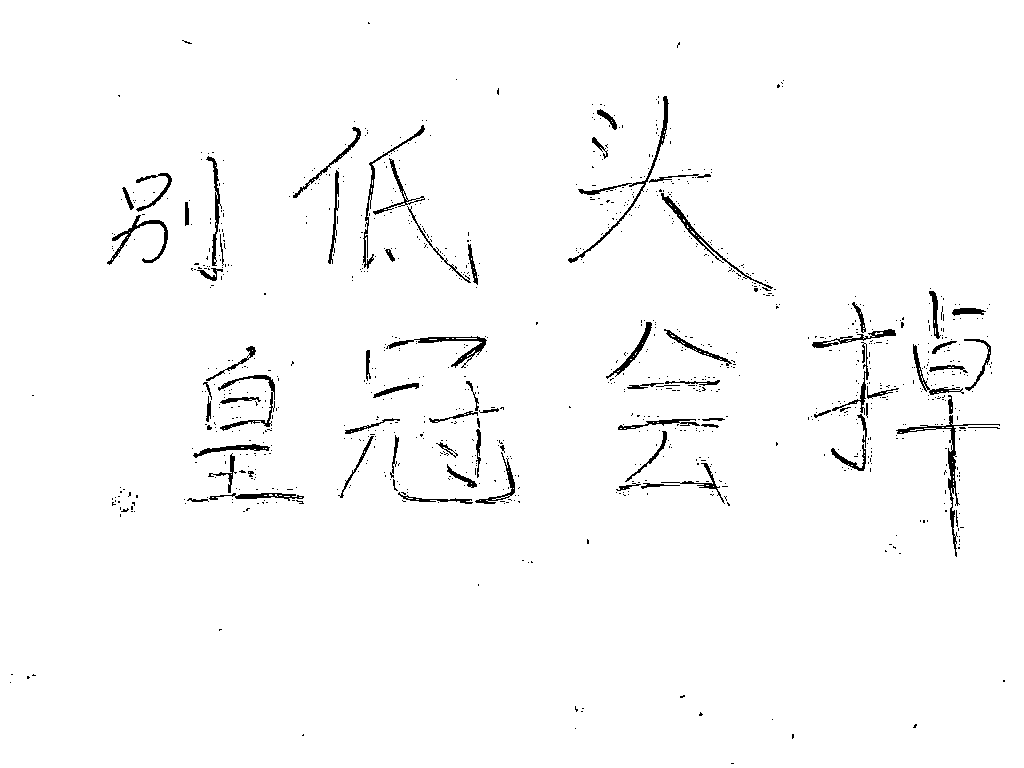 别低头
皇冠会掉